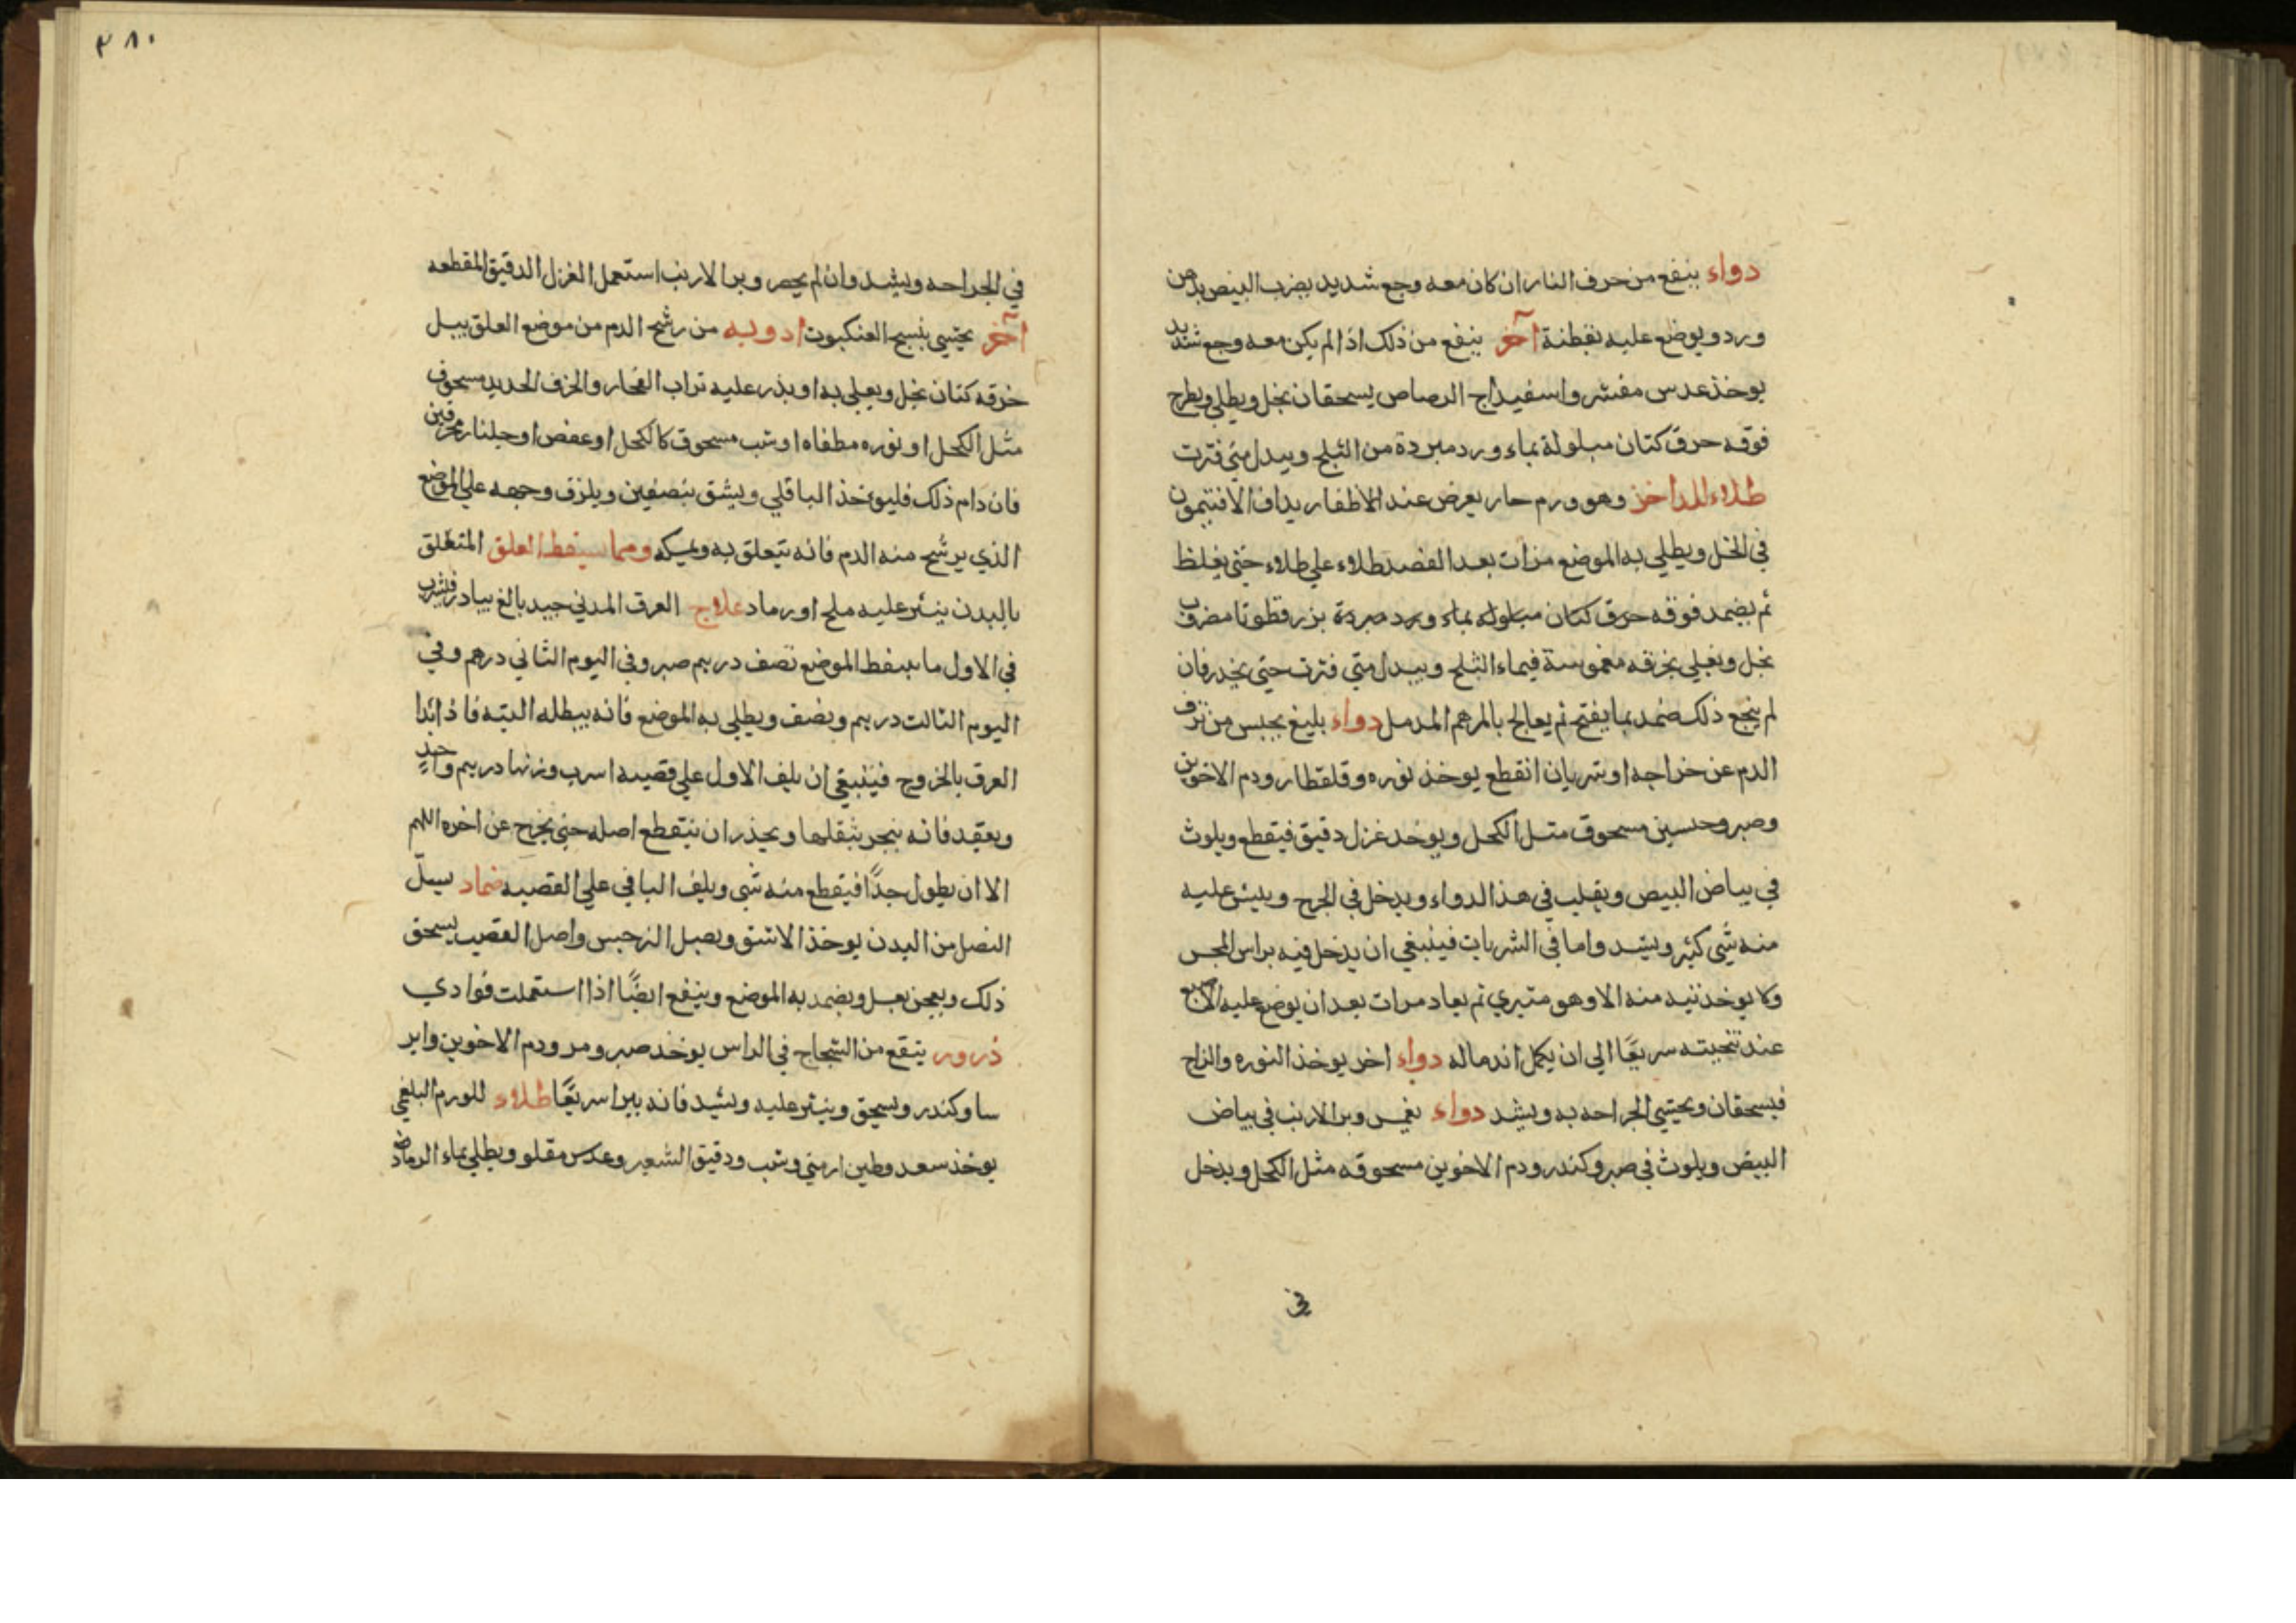 دواء ينفع من حرف النار ان كان معه وجع شديد يضرب البيض بدهن
ورد ويوضع عليه بقطنة آخر ينفع من ذلك اذا لم يكن معه وجع شديد
يوخذ عدس مقشر واسفيداج الرصاص يسحقان بخل ويطلي ويطرح
فوقه خرق كتان مبلولة بماء ورد مبردة من الثلج ويبدل متي فترت
طلاء للداخز وهو ورم حار يعرض عند الاظفار يداف الافتيمون
في الخل ويطلي به الموضع مرات بعد الفصد طلاء علي طلاء حتي يغلظ
ثم يضمد فوقه خرق كتان مبلوله بماء ورد مبردة بزر قطونا مضروب
بخل ويغلي بخرقه مغموسة في ماء الثلج ويبدل متي فترت حتي يخدر فان
لم ينجع ذلك ضمد بما يفتح ثم يعالج بالمرهم المدمل دواء بليغ يحبس من نزف
الدم عن خراجه او شريان انقطع يوخذ نوره وقلقطار ودم الاخوين
وصبر وحسين مسحوق مثل الكحل ويوخد غزل دقيق فيقطع ويلوث
في بياض البيض ويقلب في هذا الدواء ويدخل في الجرح وينثر عليه
منه شي كثير ويشد واما في الشريات فينبغي ان يدخل فيه براس المجس
ولا يوخذ نيه منه الا وهو متبري ثم يعاد مرات بعد ان يوضع عليه الاصبع
عند تنحيته سريعًا الي ان يكمل اندماله دواء اخر يوخذ النوره والزاج
فيسحقان ويحتشي الجراحه به ويشد دواء يغمس وبر الارنب في بياض
البيض ويلوث في صبر وكندر ودم الاخوين مسحوقه مثل الكحل ويدخل
في
٣٨٠
في الجراحه ويشد وان لم يحصر وبر الارنب استعمل الغزل الدقيق المقطعه
آخر يحتشي بنسج العنكبوت ادويه من رشح الدم من موضع العلق يبل
خرقه كتان بخل ويعلي به او يذر عليه تراب الفخار والخزف الحديد مسحوق
مثل الكحل او نوره مطفاه او شب مسحوق كالكحل او عفص او جلنار محرقين
فان دام ذلك فليوخذ الباقلي ويشق بنصفين ويلزق وجهه علي الموضع
الذي يرشح منه الدم فانه يتعلق به ويمسكه ومما يسقط العلق المتعلق
بالبدن ينثر عليه ملح او رماد علاج العرق المدني جيد بالغ يبادر فيشرب
في الاول ما سقط الموضع نصف دريم صبر وفي اليوم الثاني درهم وفي
اليوم الثالث دريم ونصف ويطلي به الموضع فانه يبطله البته فاذا بدا
العرق بالخروج فينبغي ان يلف الاول علي قصبه اسرب وزنها دريم واحد
ويعقد فانه ينجر بثقلها ويحذر ان ينقطع اصله حتي يخرج عن اخره اللهم
الا ان يطول جدًا فيقطع منه شي ويلف الباقي علي القصبه ضماد يسلّ
النصل من البدن يوخذ الاشق وبصل النرجس واصل القصب يسحق
ذلك ويعجن بعسل ويضمد به الموضع وينفع ايضًا اذا استعملت فوادي
ذرور ينفع من الشجاج في الراس يوخد صبر ومر ودم الاخوين وابر
سا وكندر ويسحق وينثر عليه ويشد فانه يبرا سريعًا طلاء للورم البلغمي
يوخذ سعد وطين ارمني وشب ودقيق الشعير وعدس مقلو ويطلي بماء الرماد